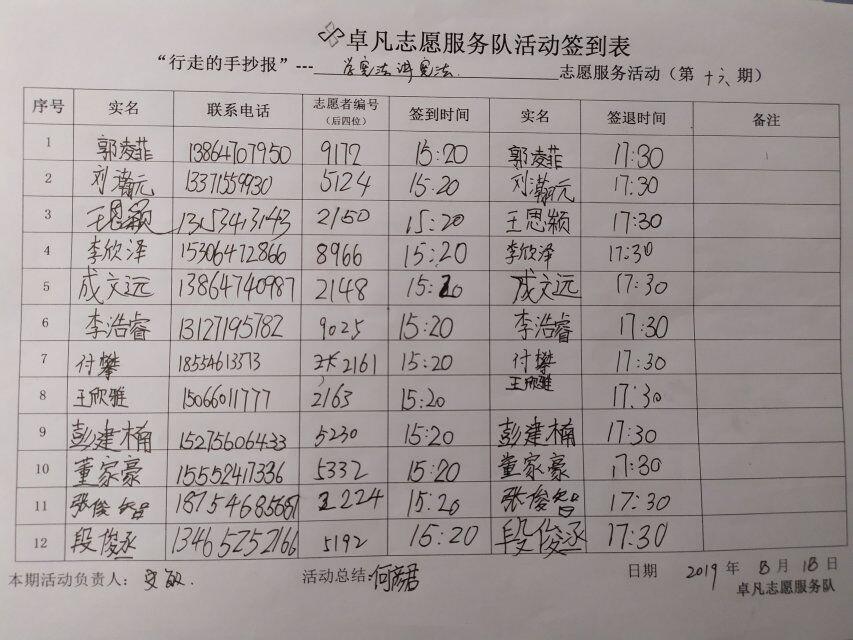 卓凡志愿服务队活动签到表
“行走的手抄报”---学宪法讲宪法 志愿服务活动（第十六期）
序号 实名 联系电话 志愿者编号（后四位） 签到时间 实名 签退时间 备注
1 郭凌菲 13864707950 9172 15:20 郭凌菲 17:30
2 刘瀚元 13371559930 5124 15:20 刘瀚元 17:30
3 王思颖 13153413143 2150 15:20 王思颖 17:30
4 李欣泽 15306472866 8966 15:20 李欣泽 17:30
5 成文远 13864740987 2148 15:20 成文远 17:30
6 李浩睿 13127195782 9025 15:20 李浩睿 17:30
7 付攀 18554613573 2161 15:20 付攀 17:30
8 王欣雅 15066011777 2163 15:20 王欣雅 17:30
9 彭建楠 15275606433 5230 15:20 彭建楠 17:30
10 董家豪 15552417336 5332 15:20 董家豪 17:30
11 张俊智 18754685687 2224 15:20 张俊智 17:30
12 段俊丞 13465252166 5192 15:20 段俊丞 17:30
本期活动负责人： 活动总结: 日期 2019年 月 日
卓凡志愿服务队